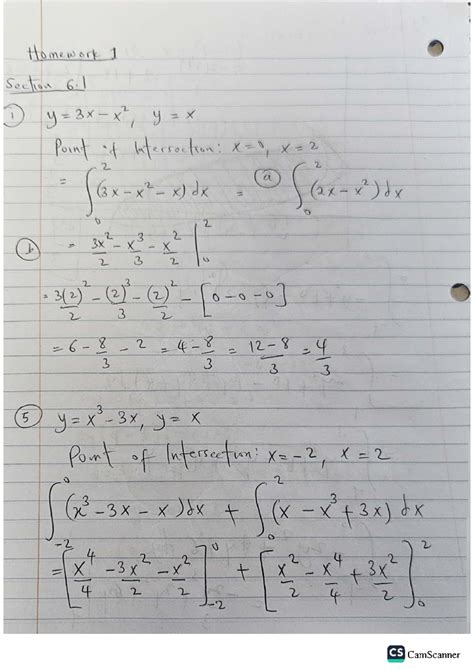 Homework 1
Section 6.1
① y = 3x - x², y = x
Point of Intersection: x = 0, x = 2
= ∫₀² (3x - x² - x) dx = ⓐ ∫₀² (2x - x²) dx
ⓑ = 3x²/2 - x³/3 - x²/2 |₀²
= 3(2)²/2 - (2)³/3 - (2)²/2 - [0 - 0 - 0]
= 6 - 8/3 - 2 = 4 - 8/3 = 12 - 8/3 = 4/3
⑤ y = x³ - 3x, y = x
Point of Intersection: x = -2, x = 2
∫₋₂⁰ (x³ - 3x - x) dx + ∫₀² (x - x³ + 3x) dx
= [x⁴/4 - 3x²/2 - x²/2]₋₂⁰ + [x²/2 - x⁴/4 + 3x²/2]₀²
CS CamScanner